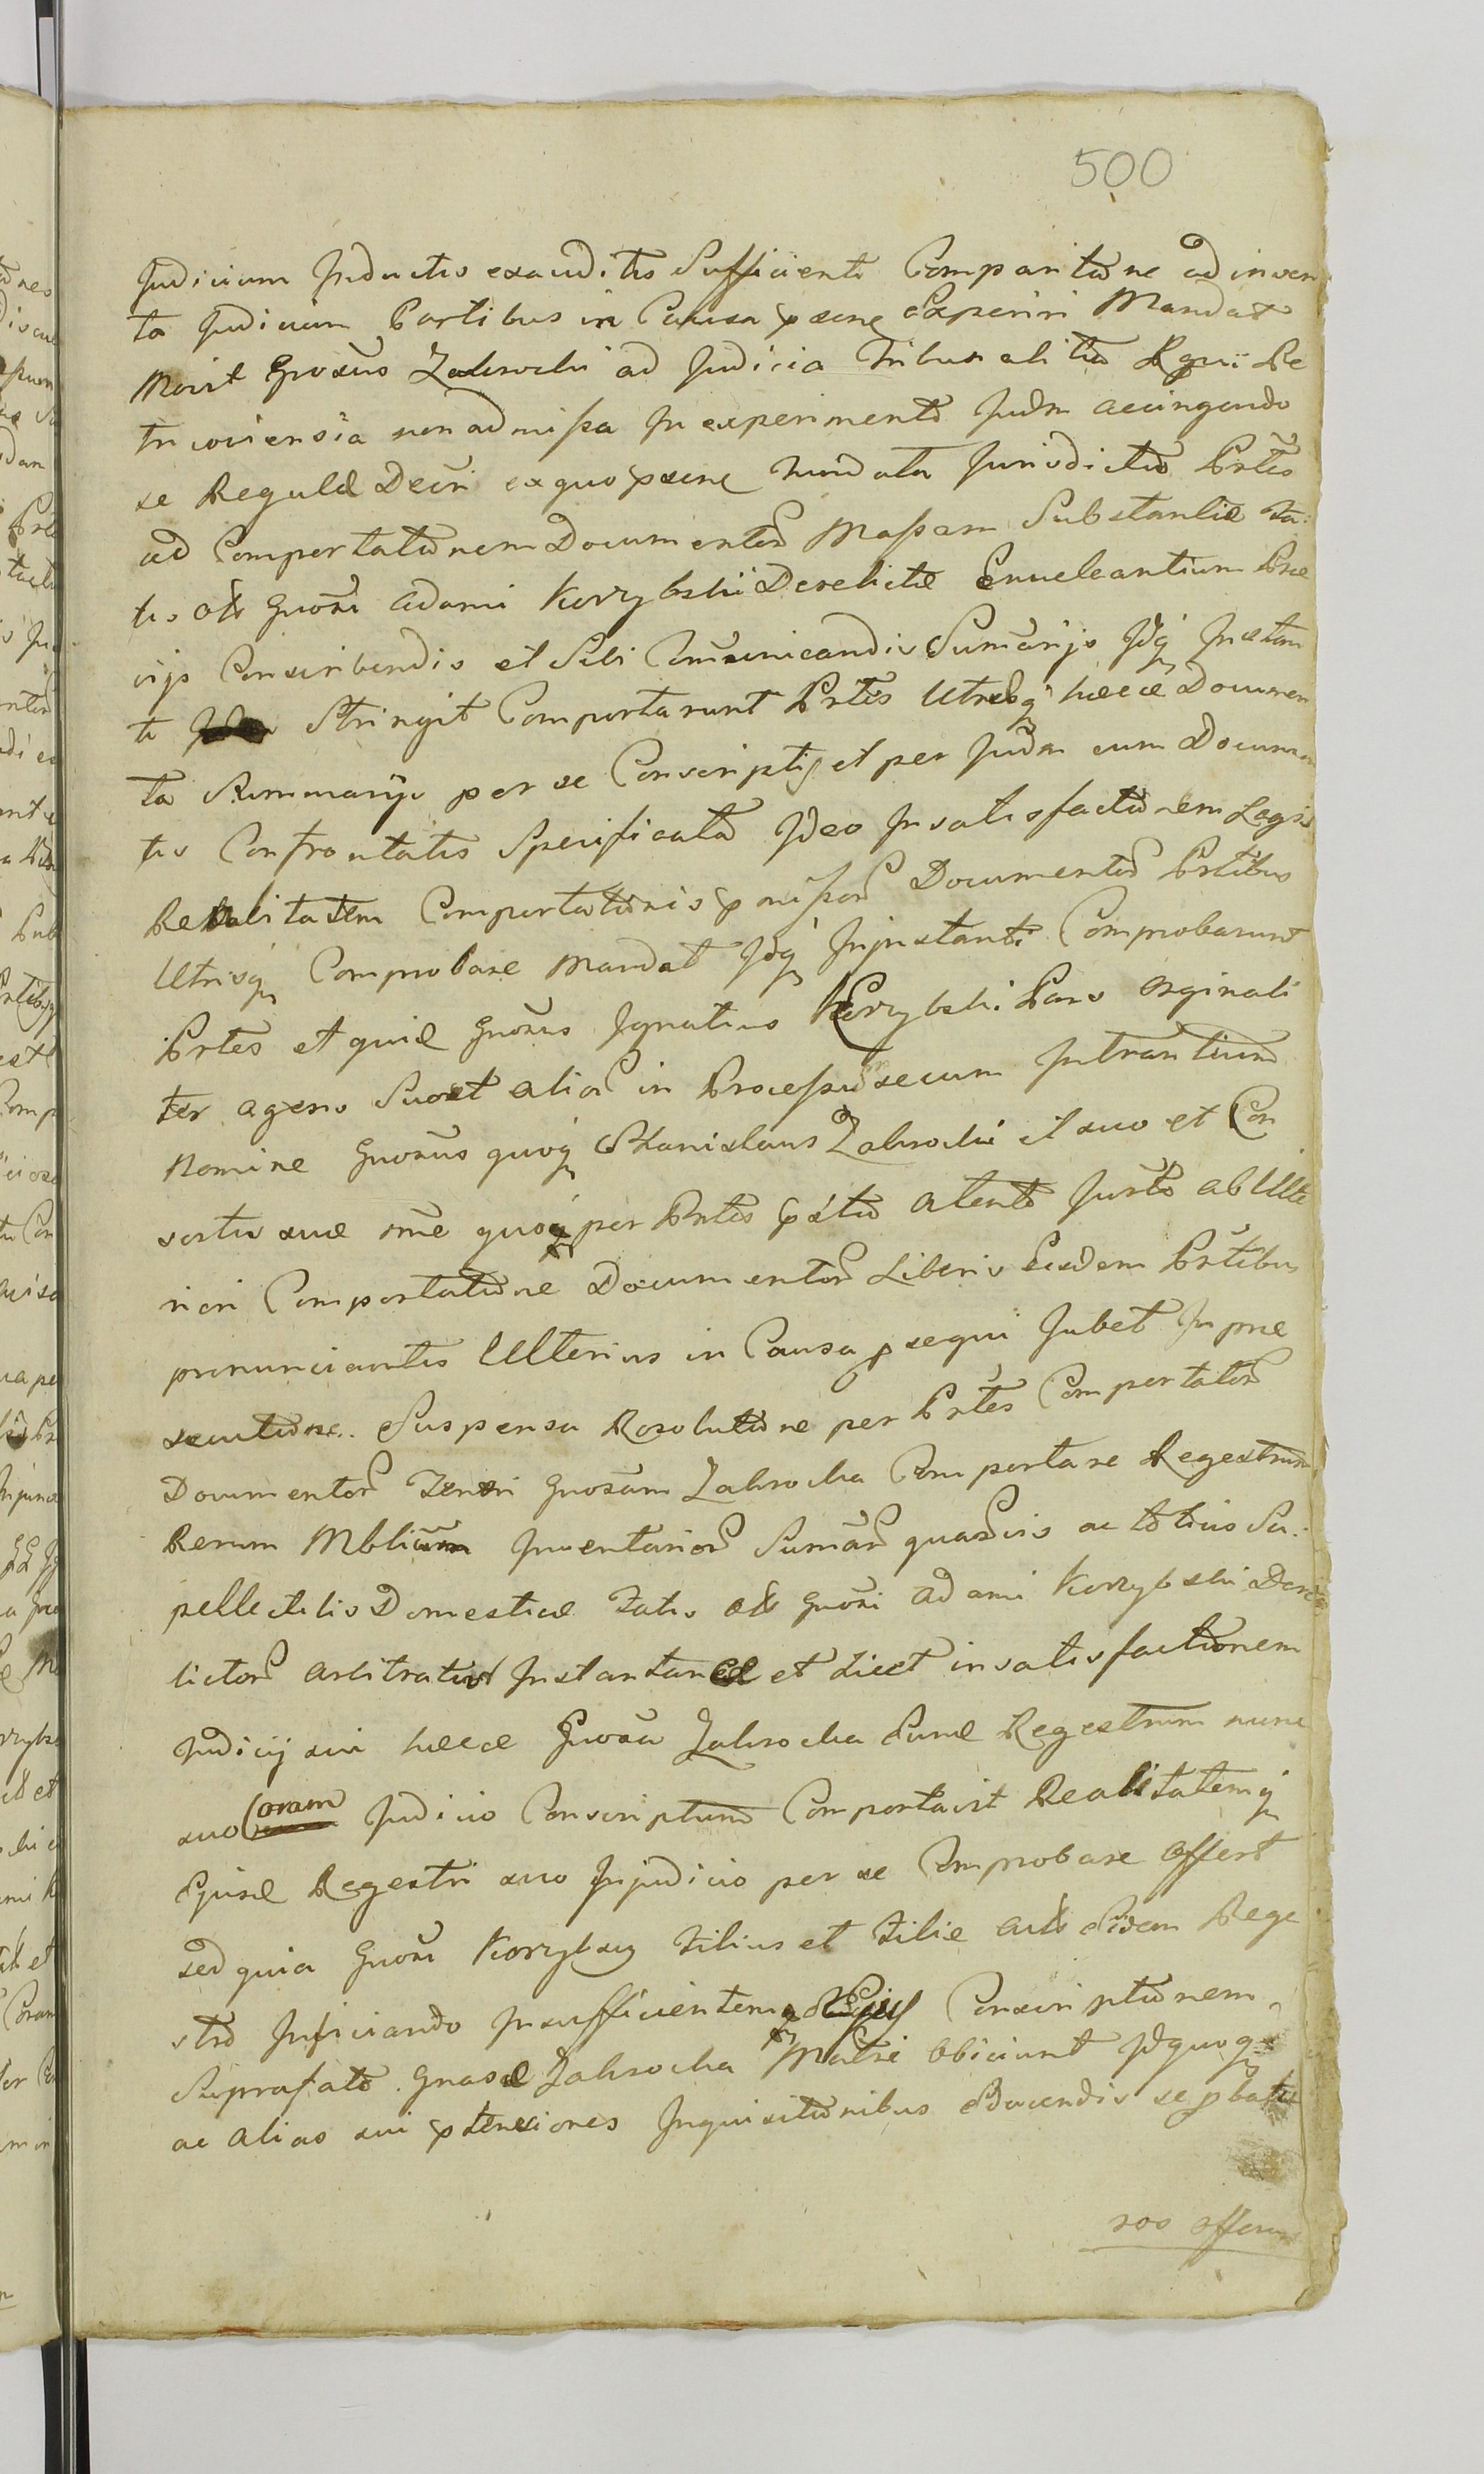 500
Judicium Inductis exauditis Sufficienti Comparitõne ad inven
ta Judicium Partibus in Causa pñne Experiri Mandat
Movit Gnosus Zakrocki ad Judicia Tribunalitia Regni Pe
tricoviensia non admissa In experimento Judm accingendo
se Regulæ Decri ex quo pñne fundata Jurisdictio Prtes
ad Comportatõnem Documentor Massam Substantiæ Fa
tis olt Gnosi Adami Korzybski Derelictæ Enucleantium Præ
vijs Conscribendis et Sibi Commũnicandis Sumarijs Idq Instan
ti Stringit Comportarunt Prtes Utræq hecce Documen
ta Summarijs per se Conscriptis et per Judm cum Documen
tis Confrontatis Specificata Ideo In satisfactõnem Legis
Realitatem Comportatõnis pmissor Documentor Prtibus
Utrisq Comprobare Mandat Idq In instanti Comprobarunt
Prtes et quia Gnosus Ignatius Korzybski Pars Orginali
ter agens Suo et alior in Processu secum Intrantium
Nomine Gnosus quoq Stanislaus Zakrocki et suo et Con
sortis suæ nne quoq per Prtes pstito atento Jurto ab Ulte
riori Comportatõne Documentor Liberis Eisdem Prtibus
pronunciantis Ulterius in Causa psequi Jubet In pro
secutõne. Suspensa Resolutõne per Prtes Comportator
Documentor Teneri Gnosam Zakrocka Comportare Regestrum
Rerum Mblium Inventarior Sumar quarvis ac totius Su
pellectilis Domesticæ Fatis olt Gnosi Adami Korzybski Dere
lictor arbitratur Instantanee et licet in satisfactionem
Judicij sui hecce Gnosa Zakrocka Eund Regestrum nunc
suo Coram Judicio Conscriptum Comportavit Realitatemq
Ejusd Regestri suo In judicio per se Comprobare offert
sed quia Gnosi Korzybscy Filius et Filiæ olt Eidem Rege
stro Inficiando Insufficientemq Ejus Conscriptõnem
Suprafatæ Gnosæ Zakrocka Matri obiciunt Idquoq
ac alias sui ptensiones Inquisitõnibus Educendis se pbatu
ros offerunt